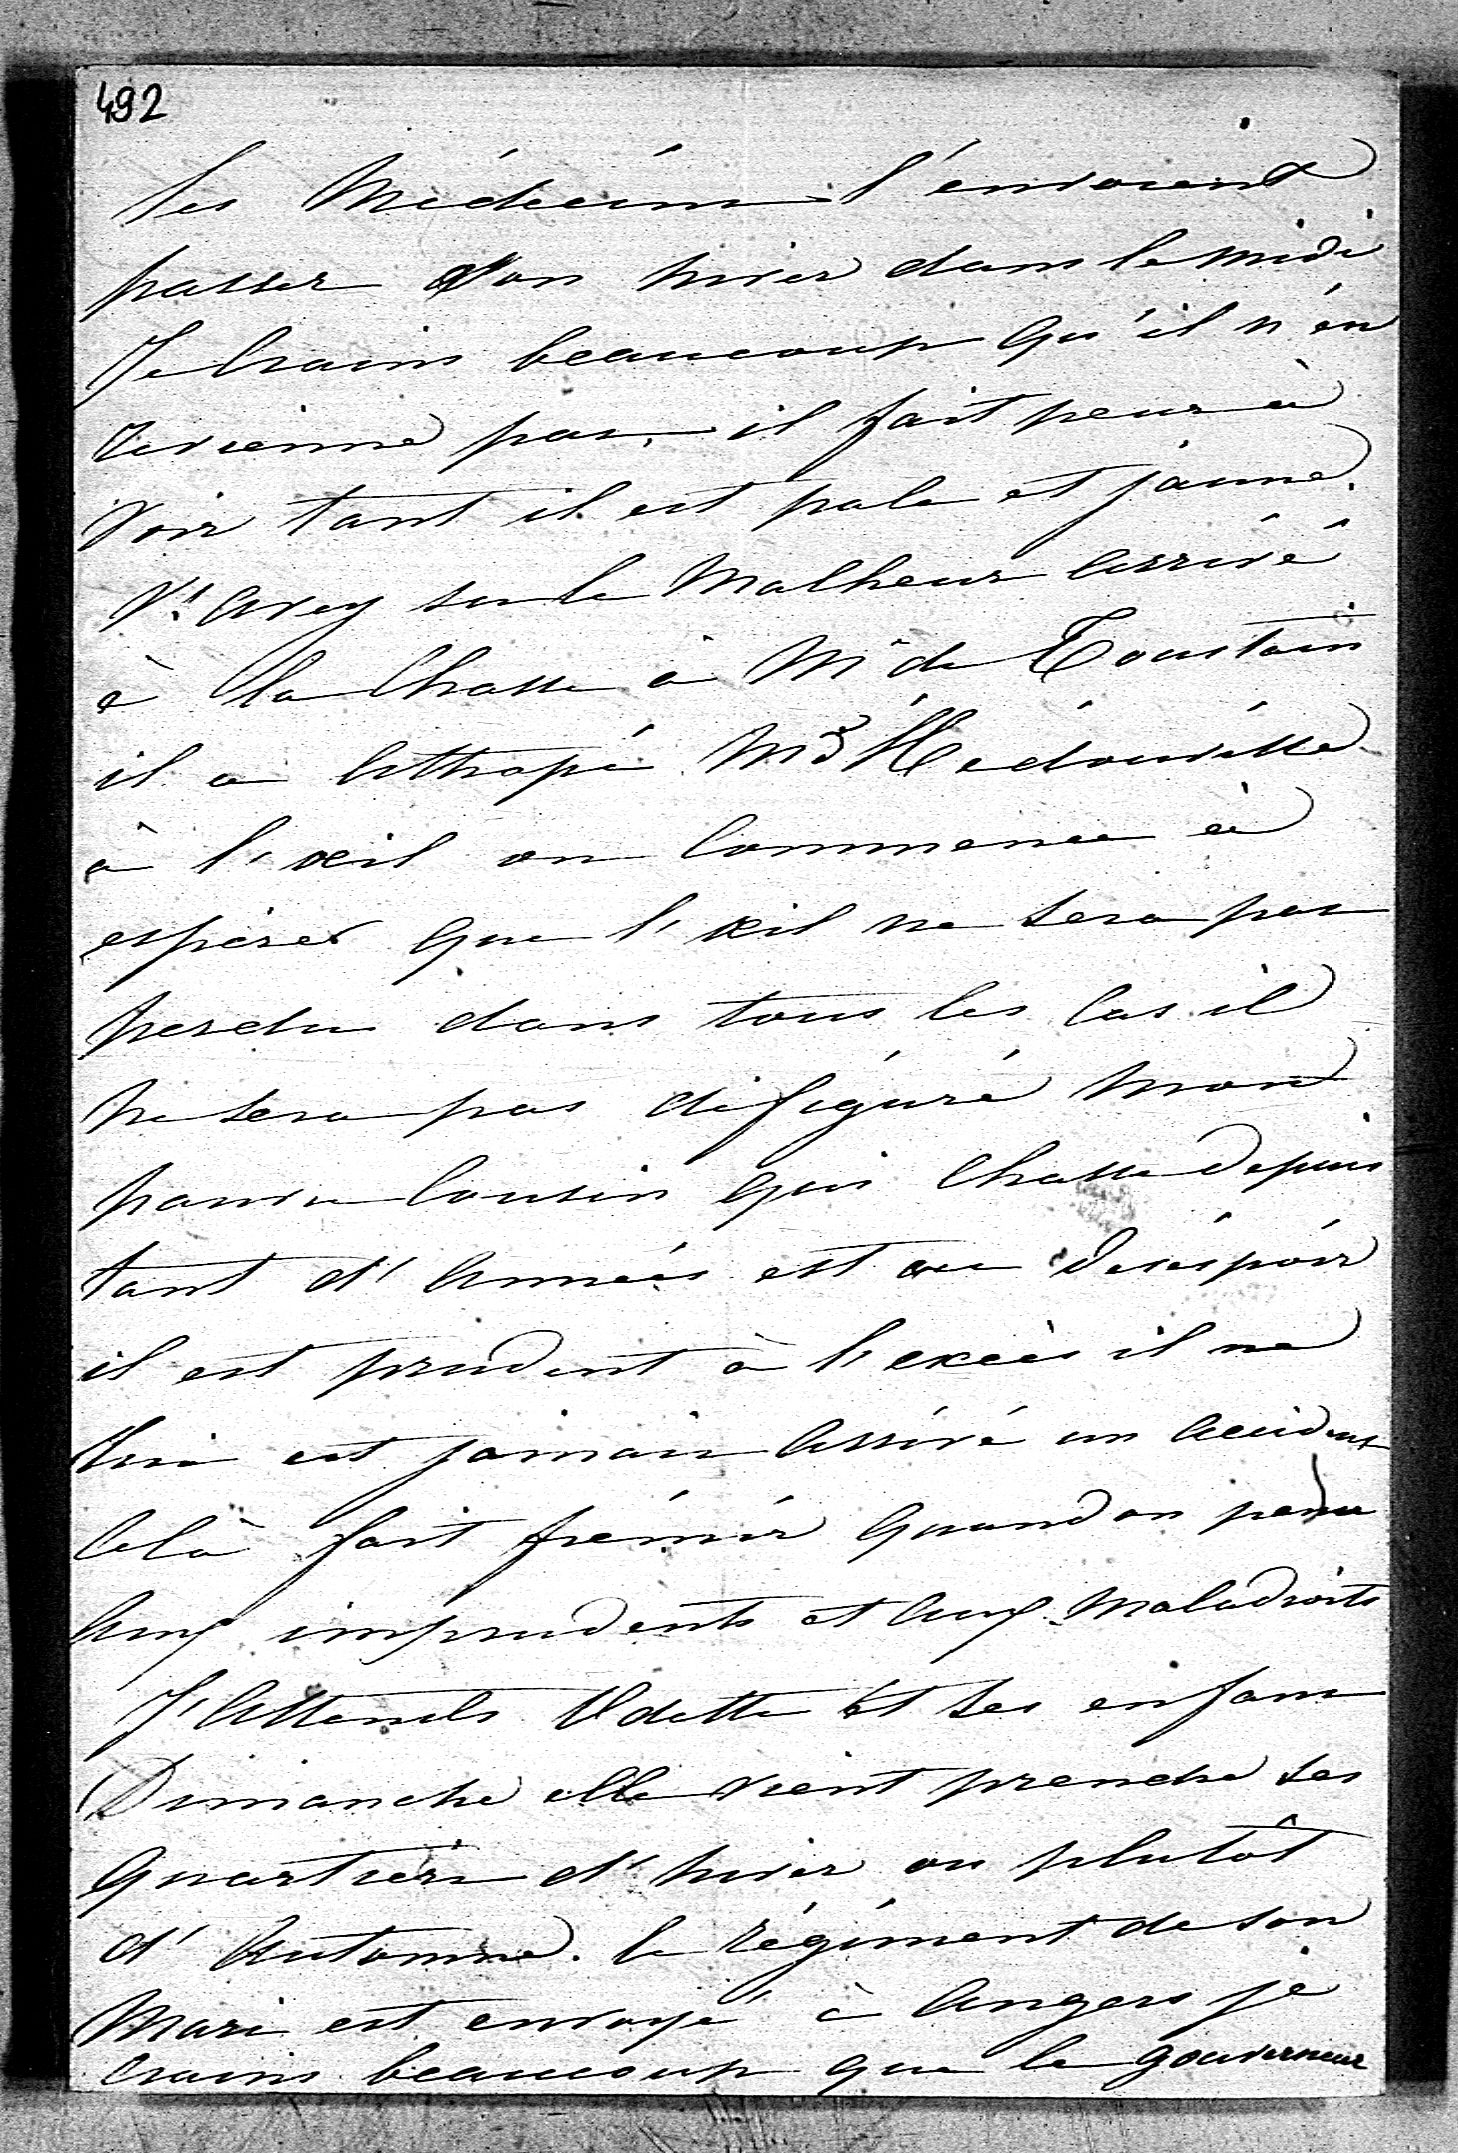 492
les Médecins l'envoient
passer son hiver dans le midi
Je Crains beaucoup qu'il n'en
revienne pas, il fait peur à
voir tant il est pale et jaune.
Vs Avez su le Malheur Arrivé
à la Chasse à Mr de Toustain
il a Attrapé Mr d'Hédouville
à l'œil on Commence à
espérer que l'œil ne sera pas
perdu dans tous les Cas il
ne sera pas défiguré mon
pauvre Cousin qui Chasse depuis
tant d'Années est au déséspoir
il est prudent à l'excès il ne
lui est jamais Arrivé un Accident
Celà fait frémir quand on pense
Aux imprudents et Aux Maladroits
J'Attends Odette et ses enfans
Dimanche elle vient prendre ses
quartiers d'hiver ou plutôt
d'Automne. le régiment de son
Mari est envoyé à Angers je
crains beaucoup que le gouverneur